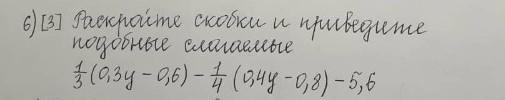 6) [3] Раскройте скобки и приведите
подобные слагаемые
1/3 (0,3y − 0,6) − 1/4 (0,4y − 0,8) − 5,6